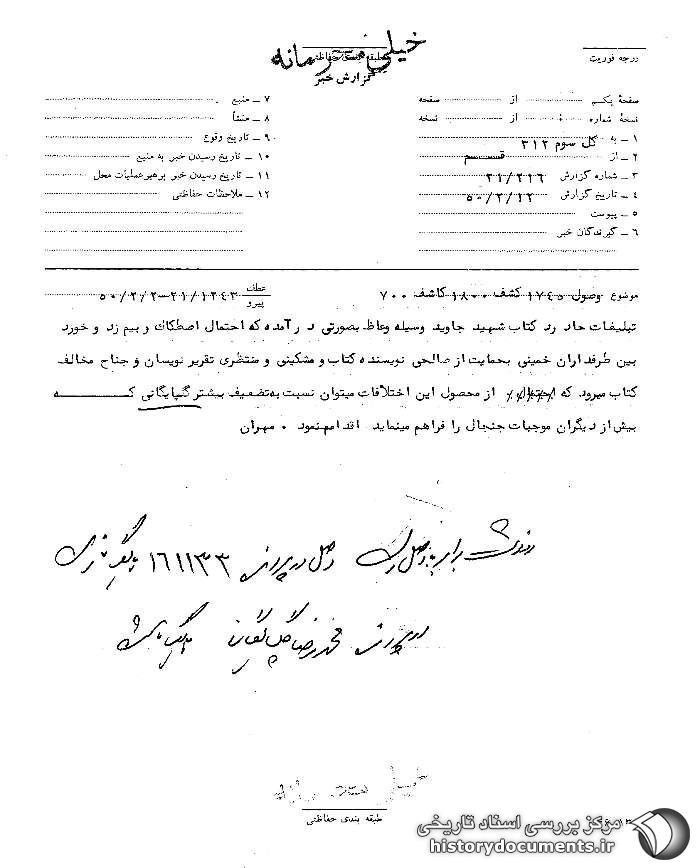 خیلی محرمانه
طبقه بندی حفاظتی
گزارش خبر
درجه فوریت
صفحهٔ یکم از صفحه
نسخهٔ شماره از نسخه
۱ ــ به کل سوم ۳۱۲
۲ ــ از قسم
۳ ــ شماره گزارش ۲۱/۲۱۶
۴ ــ تاریخ گزارش ۵۰/۲/۱۲
۵ ــ پیوست
۶ ــ گیرندگان خبر
۷ ــ منبع
۸ ــ منشأ
۹ ــ تاریخ وقوع
۱۰ ــ تاریخ رسیدن خبر به منبع
۱۱ ــ تاریخ رسیدن خبر برهبرعملیات محل
۱۲ ــ ملاحظات حفاظتی
موضوع وصول ۱۷۴۵ کشف ۱۸۰۰ کاشف ۷۰۰
عطف
پیرو
۲۱/۱۲۴۳-۵۰/۲/۲
تبلیغات حاد رد کتاب شهید جاوید وسیله وعاظ بصورتی در آمده که احتمال اصطکاك و بیم زد و خورد
بین طرفداران خمینی بحمایت از صالحی نویسنده کتاب و مشکینی و منتظری تقریر نویسان و جناح مخالف
کتاب میرود که از محصول این اختلافات میتوان نسبت به تضعیف بیشتر گلپایگانی که
بیش از دیگران موجبات جنجال را فراهم مینماید اقدام نمود . مهران
۱۶۱۱۳۳
در پرونده محمدرضا گلپایگانی
خیلی محرمانه
طبقه بندی حفاظتی
مرکز بررسی اسناد تاریخی
historydocuments.ir